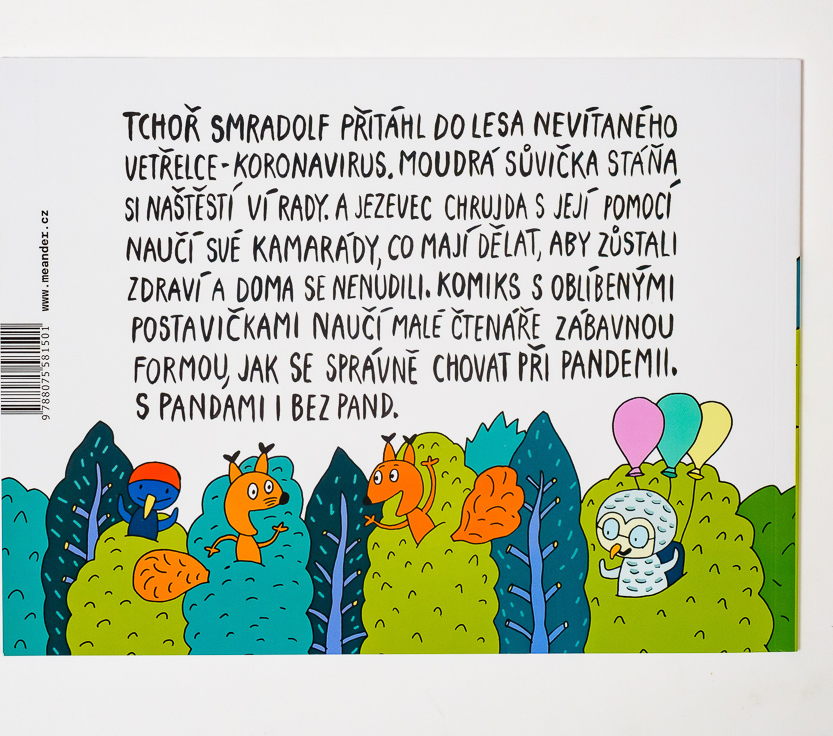 TCHOŘ SMRADOLF PŘITÁHL DO LESA NEVÍTANÉHO
VETŘELCE-KORONAVIRUS. MOUDRÁ SŮVIČKA STÁŇA
SI NAŠTĚSTÍ VÍ RADY. A JEZEVEC CHRUJDA S JEJÍ POMOCÍ
NAUČÍ SVÉ KAMARÁDY, CO MAJÍ DĚLAT, ABY ZŮSTALI
ZDRAVÍ A DOMA SE NENUDILI. KOMIKS S OBLÍBENÝMI
POSTAVIČKAMI NAUČÍ MALÉ ČTENÁŘE ZÁBAVNOU
FORMOU, JAK SE SPRÁVNĚ CHOVAT PŘI PANDEMII.
S PANDAMI I BEZ PAND.
www.meander.cz
9 788075 581501